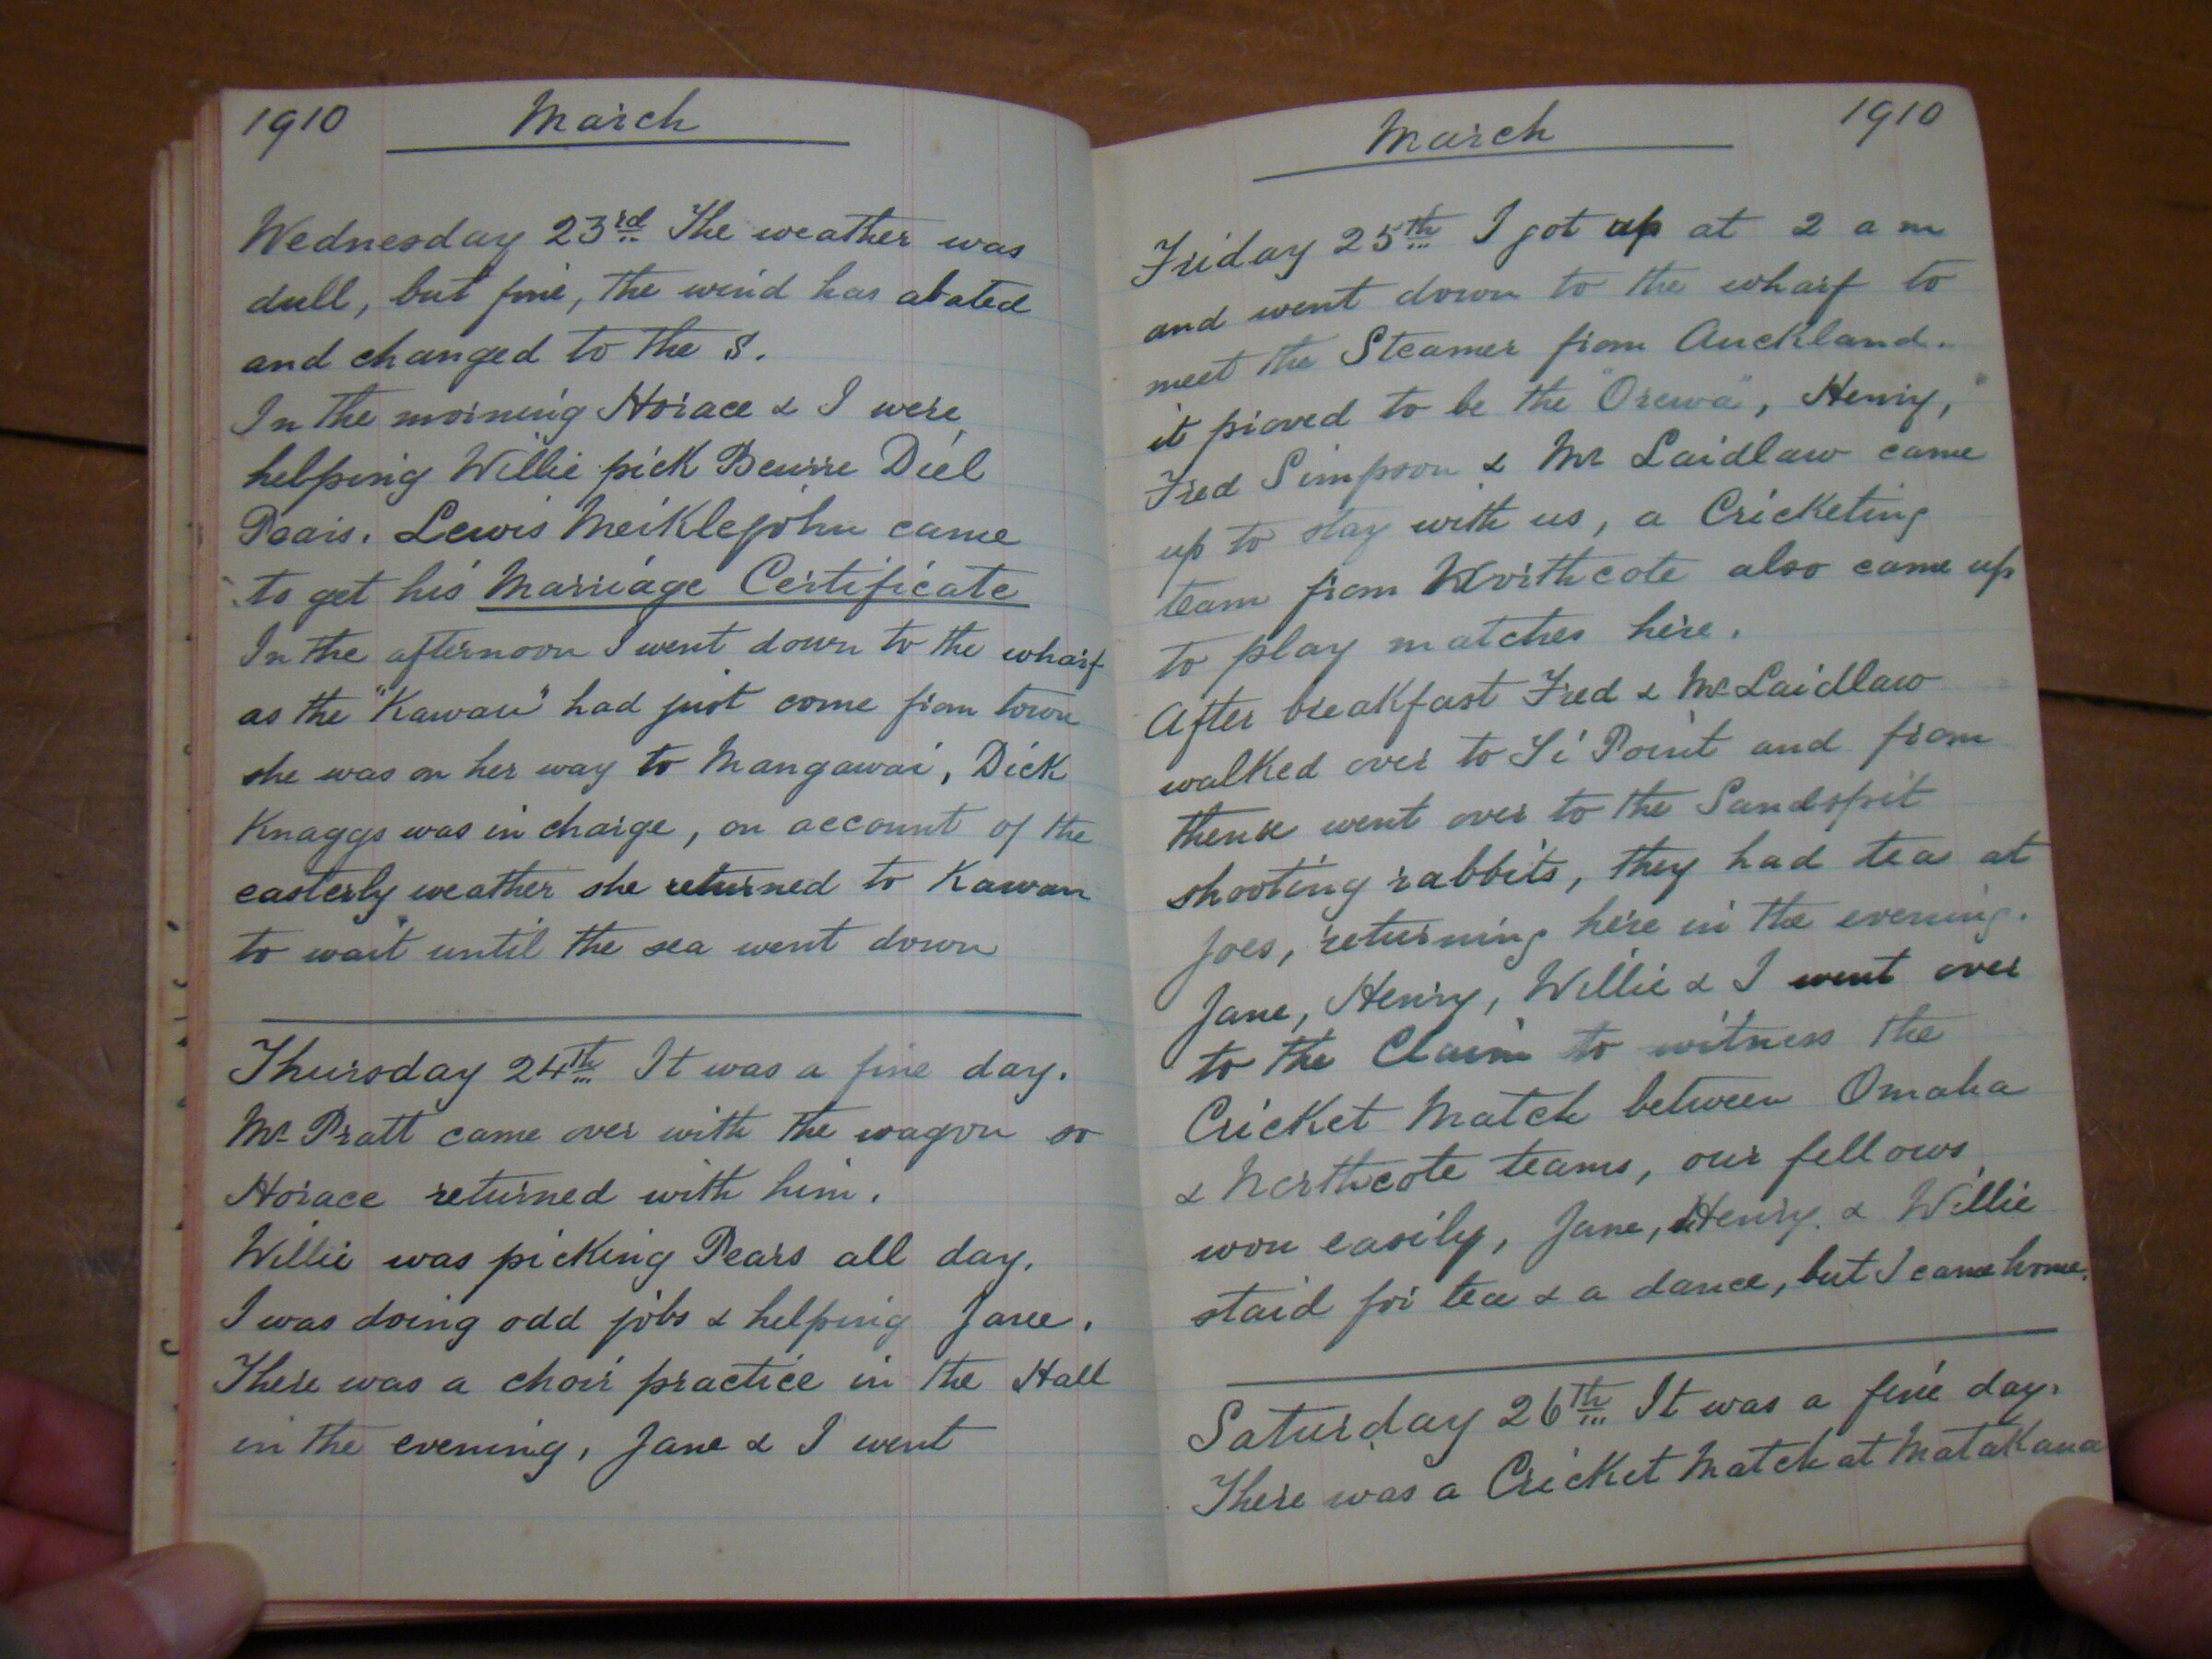 1910 March
Wednesday 23rd The weather was
dull, but fine, the wind has abated
and changed to the S.
In the morning Horace & I were
helping Willie pick Beurre Diel
Pears. Lewis Meiklejohn came
to get his Marriage Certificate
In the afternoon I went down to the wharf
as the "Kawau" had just come from town
she was on her way to Mangawai, Dick
Knaggs was in charge, on account of the
easterly weather she returned to Kawau
to wait until the sea went down
Thursday 24th It was a fine day.
Mr Pratt came over with the wagon so
Horace returned with him.
Willie was picking Pears all day.
I was doing odd jobs & helping Jane.
There was a choir practice in the Hall
in the evening, Jane & I went
March 1910
Friday 25th I got up at 2 a m
and went down to the wharf to
meet the Steamer from Auckland.
it proved to be the "Orewa", Henry,
Fred Simpson & Mr Laidlaw came
up to stay with us, a Cricketing
team from Northcote also came up
to play matches here.
After breakfast Fred & Mr Laidlaw
walked over to Ti Point and from
thence went over to the Sandspit
shooting rabbits, they had tea at
Joes, returning here in the evening.
Jane, Henry, Willie & I went over
to the Claim to witness the
Cricket Match between Omaha
& Northcote teams, our fellows
won easily, Jane, Henry & Willie
staid for tea & a dance, but I came home.
Saturday 26th It was a fine day.
There was a Cricket Match at Matakana